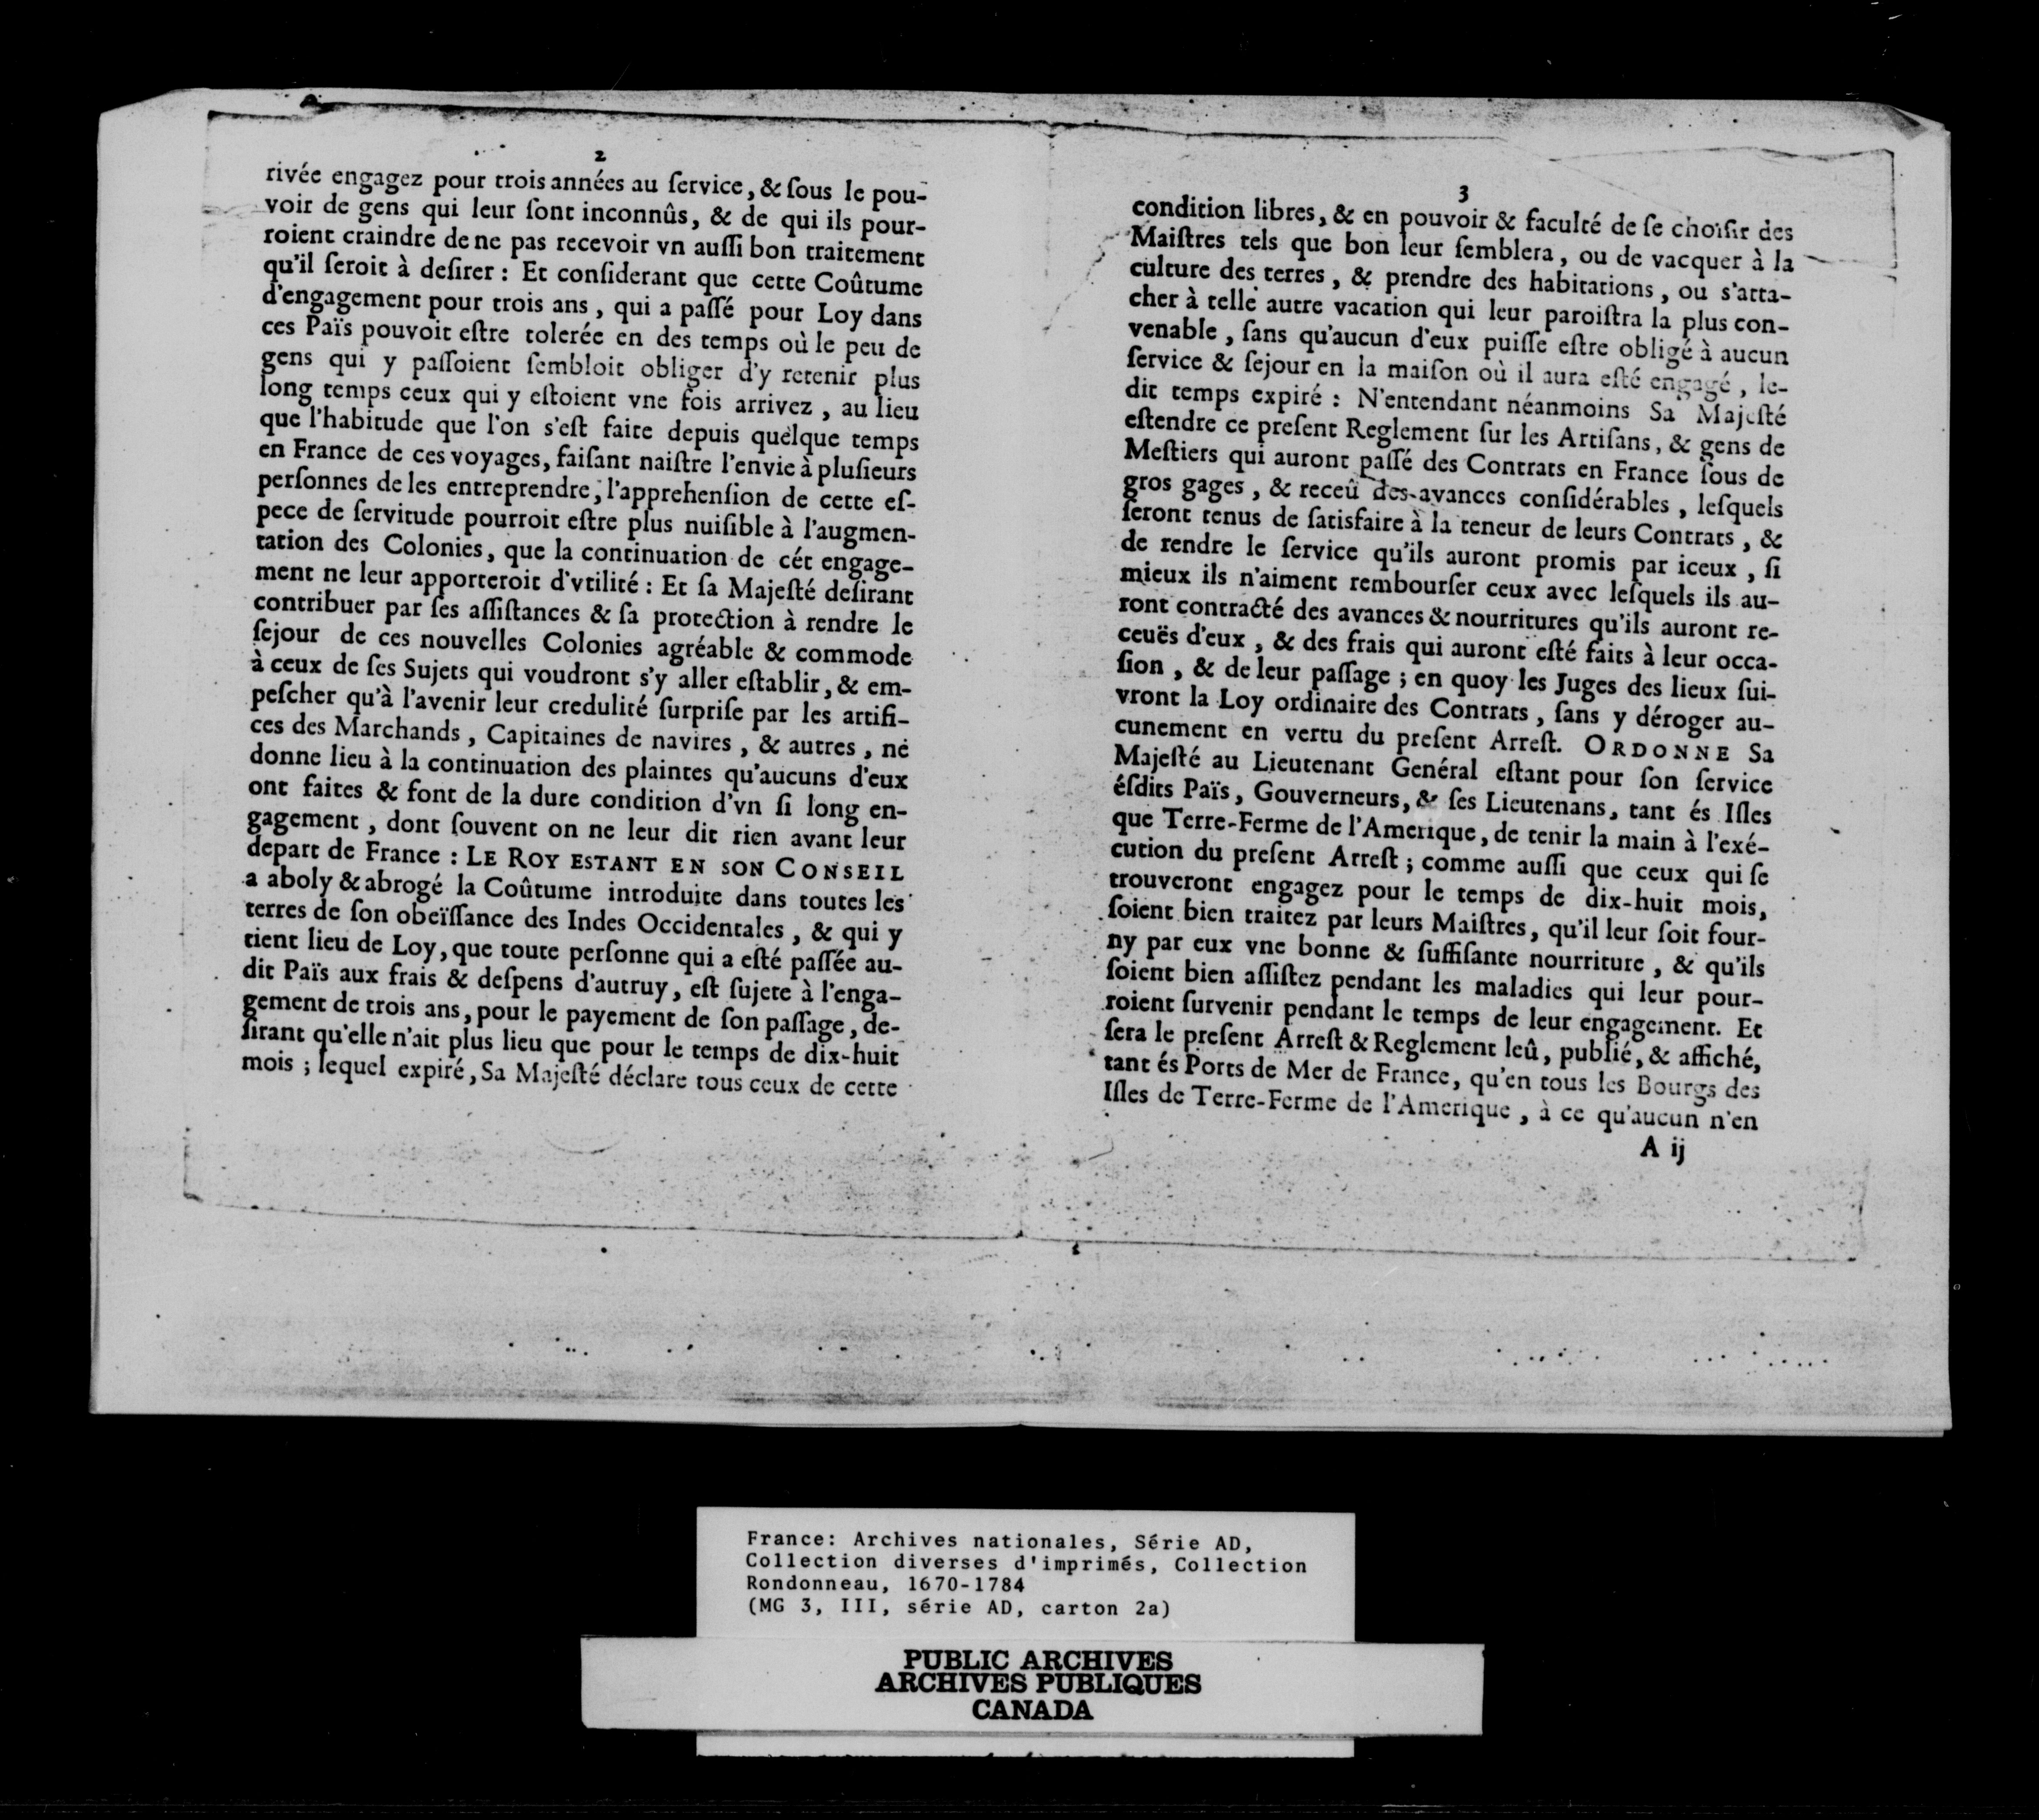 2
rivée engagez pour trois années au ſervice, & ſous le pou-
voir de gens qui leur ſont inconnûs, & de qui ils pour-
roient craindre de ne pas recevoir vn auſſi bon traitement
qu'il ſeroit à deſirer : Et conſiderant que cette Coûtume
d'engagement pour trois ans, qui a paſſé pour Loy dans
ces Païs pouvoit eſtre tolerée en des temps où le peu de
gens qui y paſſoient ſembloit obliger d'y retenir plus
long temps ceux qui y eſtoient vne fois arrivez, au lieu
que l'habitude que l'on s'eſt faite depuis quelque temps
en France de ces voyages, faiſant naiſtre l'envie à pluſieurs
perſonnes de les entreprendre, l'apprehenſion de cette eſ-
pece de ſervitude pourroit eſtre plus nuiſible à l'augmen-
tation des Colonies, que la continuation de cét engage-
ment ne leur apporteroit d'vtilité : Et ſa Majeſté deſirant
contribuer par ſes aſſiſtances & ſa protection à rendre le
ſejour de ces nouvelles Colonies agréable & commode
à ceux de ſes Sujets qui voudront s'y aller eſtablir, & em-
peſcher qu'à l'avenir leur credulité ſurpriſe par les artifi-
ces des Marchands, Capitaines de navires, & autres, ne
donne lieu à la continuation des plaintes qu'aucuns d'eux
ont faites & font de la dure condition d'vn ſi long en-
gagement, dont ſouvent on ne leur dit rien avant leur
depart de France : LE ROY ESTANT EN SON CONSEIL
a aboly & abrogé la Coûtume introduite dans toutes les
terres de ſon obeïſſance des Indes Occidentales, & qui y
tient lieu de Loy, que toute perſonne qui a eſté paſſée au-
dit Païs aux frais & deſpens d'autruy, eſt ſujete à l'enga-
gement de trois ans, pour le payement de ſon paſſage, de-
ſirant qu'elle n'ait plus lieu que pour le temps de dix-huit
mois ; lequel expiré, Sa Majeſté déclare tous ceux de cette
3
condition libres, & en pouvoir & faculté de ſe choiſir des
Maiſtres tels que bon leur ſemblera, ou de vacquer à la
culture des terres, & prendre des habitations, ou s'atta-
cher à telle autre vacation qui leur paroiſtra la plus con-
venable, ſans qu'aucun d'eux puiſſe eſtre obligé à aucun
ſervice & ſejour en la maiſon où il aura eſté engagé, le-
dit temps expiré : N'entendant néanmoins Sa Majeſté
eſtendre ce preſent Reglement ſur les Artiſans, & gens de
Meſtiers qui auront paſſé des Contrats en France ſous de
gros gages, & receû des avances conſidérables, leſquels
ſeront tenus de ſatisfaire à la teneur de leurs Contrats, &
de rendre le ſervice qu'ils auront promis par iceux, ſi
mieux ils n'aiment rembourſer ceux avec leſquels ils au-
ront contracté des avances & nourritures qu'ils auront re-
ceuës d'eux, & des frais qui auront eſté faits à leur occa-
ſion, & de leur paſſage ; en quoy les Juges des lieux ſui-
vront la Loy ordinaire des Contrats, ſans y déroger au-
cunement en vertu du preſent Arreſt. ORDONNE Sa
Majeſté au Lieutenant Genéral eſtant pour ſon ſervice
éſdits Païs, Gouverneurs, & ſes Lieutenans, tant és Iſles
que Terre-Ferme de l'Amerique, de tenir la main à l'exé-
cution du preſent Arreſt ; comme auſſi que ceux qui ſe
trouveront engagez pour le temps de dix-huit mois,
ſoient bien traitez par leurs Maiſtres, qu'il leur ſoit four-
ny par eux vne bonne & ſuffiſante nourriture, & qu'ils
ſoient bien aſſiſtez pendant les maladies qui leur pour-
roient ſurvenir pendant le temps de leur engagement. Et
ſera le preſent Arreſt & Reglement leû, publié, & affiché,
tant és Ports de Mer de France, qu'en tous les Bourgs des
Iſles de Terre-Ferme de l'Amerique, à ce qu'aucun n'en
A ij
France: Archives nationales, Série AD,
Collection diverses d'imprimés, Collection
Rondonneau, 1670-1784
(MG 3, III, série AD, carton 2a)
PUBLIC ARCHIVES
ARCHIVES PUBLIQUES
CANADA